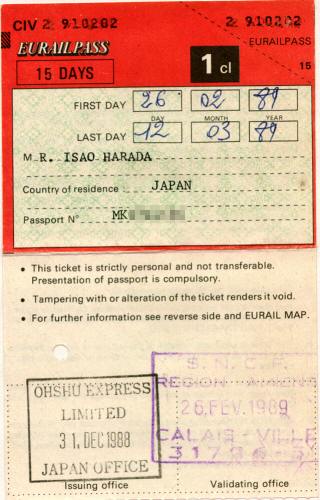 CIV 2 910202 2 910202
EURAILPASS EURAILPASS
15 DAYS 1 cl 15
FIRST DAY 26 02 89
DAY MONTH YEAR
LAST DAY 12 03 89
M R. ISAO HARADA
Country of residence JAPAN
Passport N° MK
• This ticket is strictly personal and not transferable.
Presentation of passport is compulsory.
• Tampering with or alteration of the ticket renders it void.
• For further information see reverse side and EURAIL MAP.
S.N.C.F.
REGION AMIENS
OHSHU EXPRESS
LIMITED
26.FEV.1989
31. DEC 1988
CALAIS-VILLE
JAPAN OFFICE
Issuing office Validating office